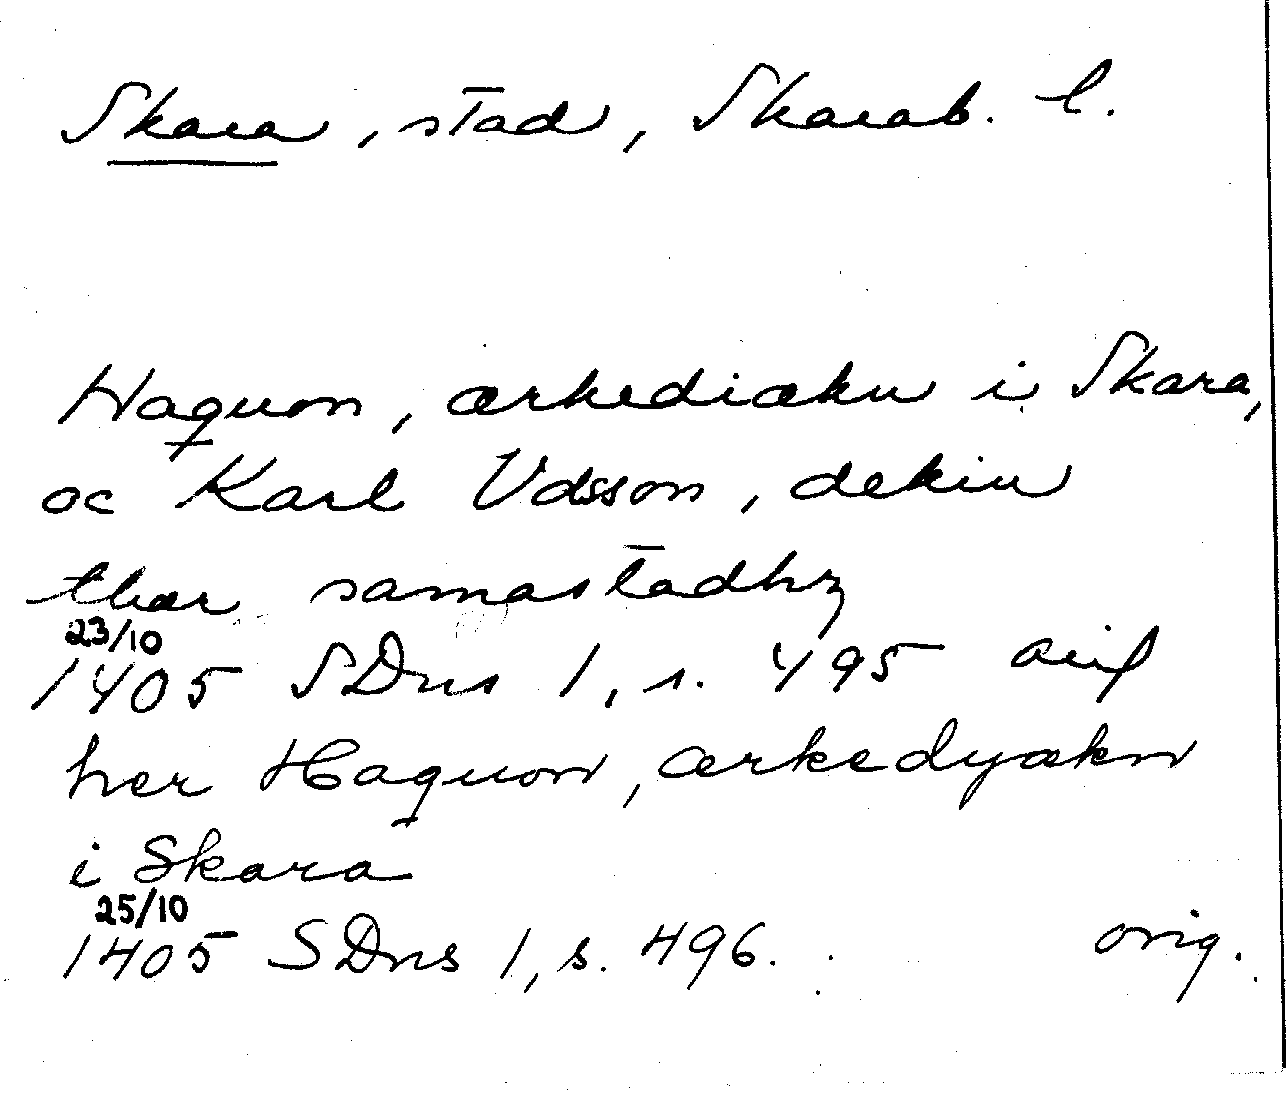 Skara, stad, Skarab. l.
Haquon, ærkediækn i Skara,
oc Karl Udsson, dekin
thær samastadhz
23/10
1405 SDns 1, s. 495 avs
her Haquon, ærkedyækn
i Skara
25/10
1405 SDns 1, s. 496. orig.